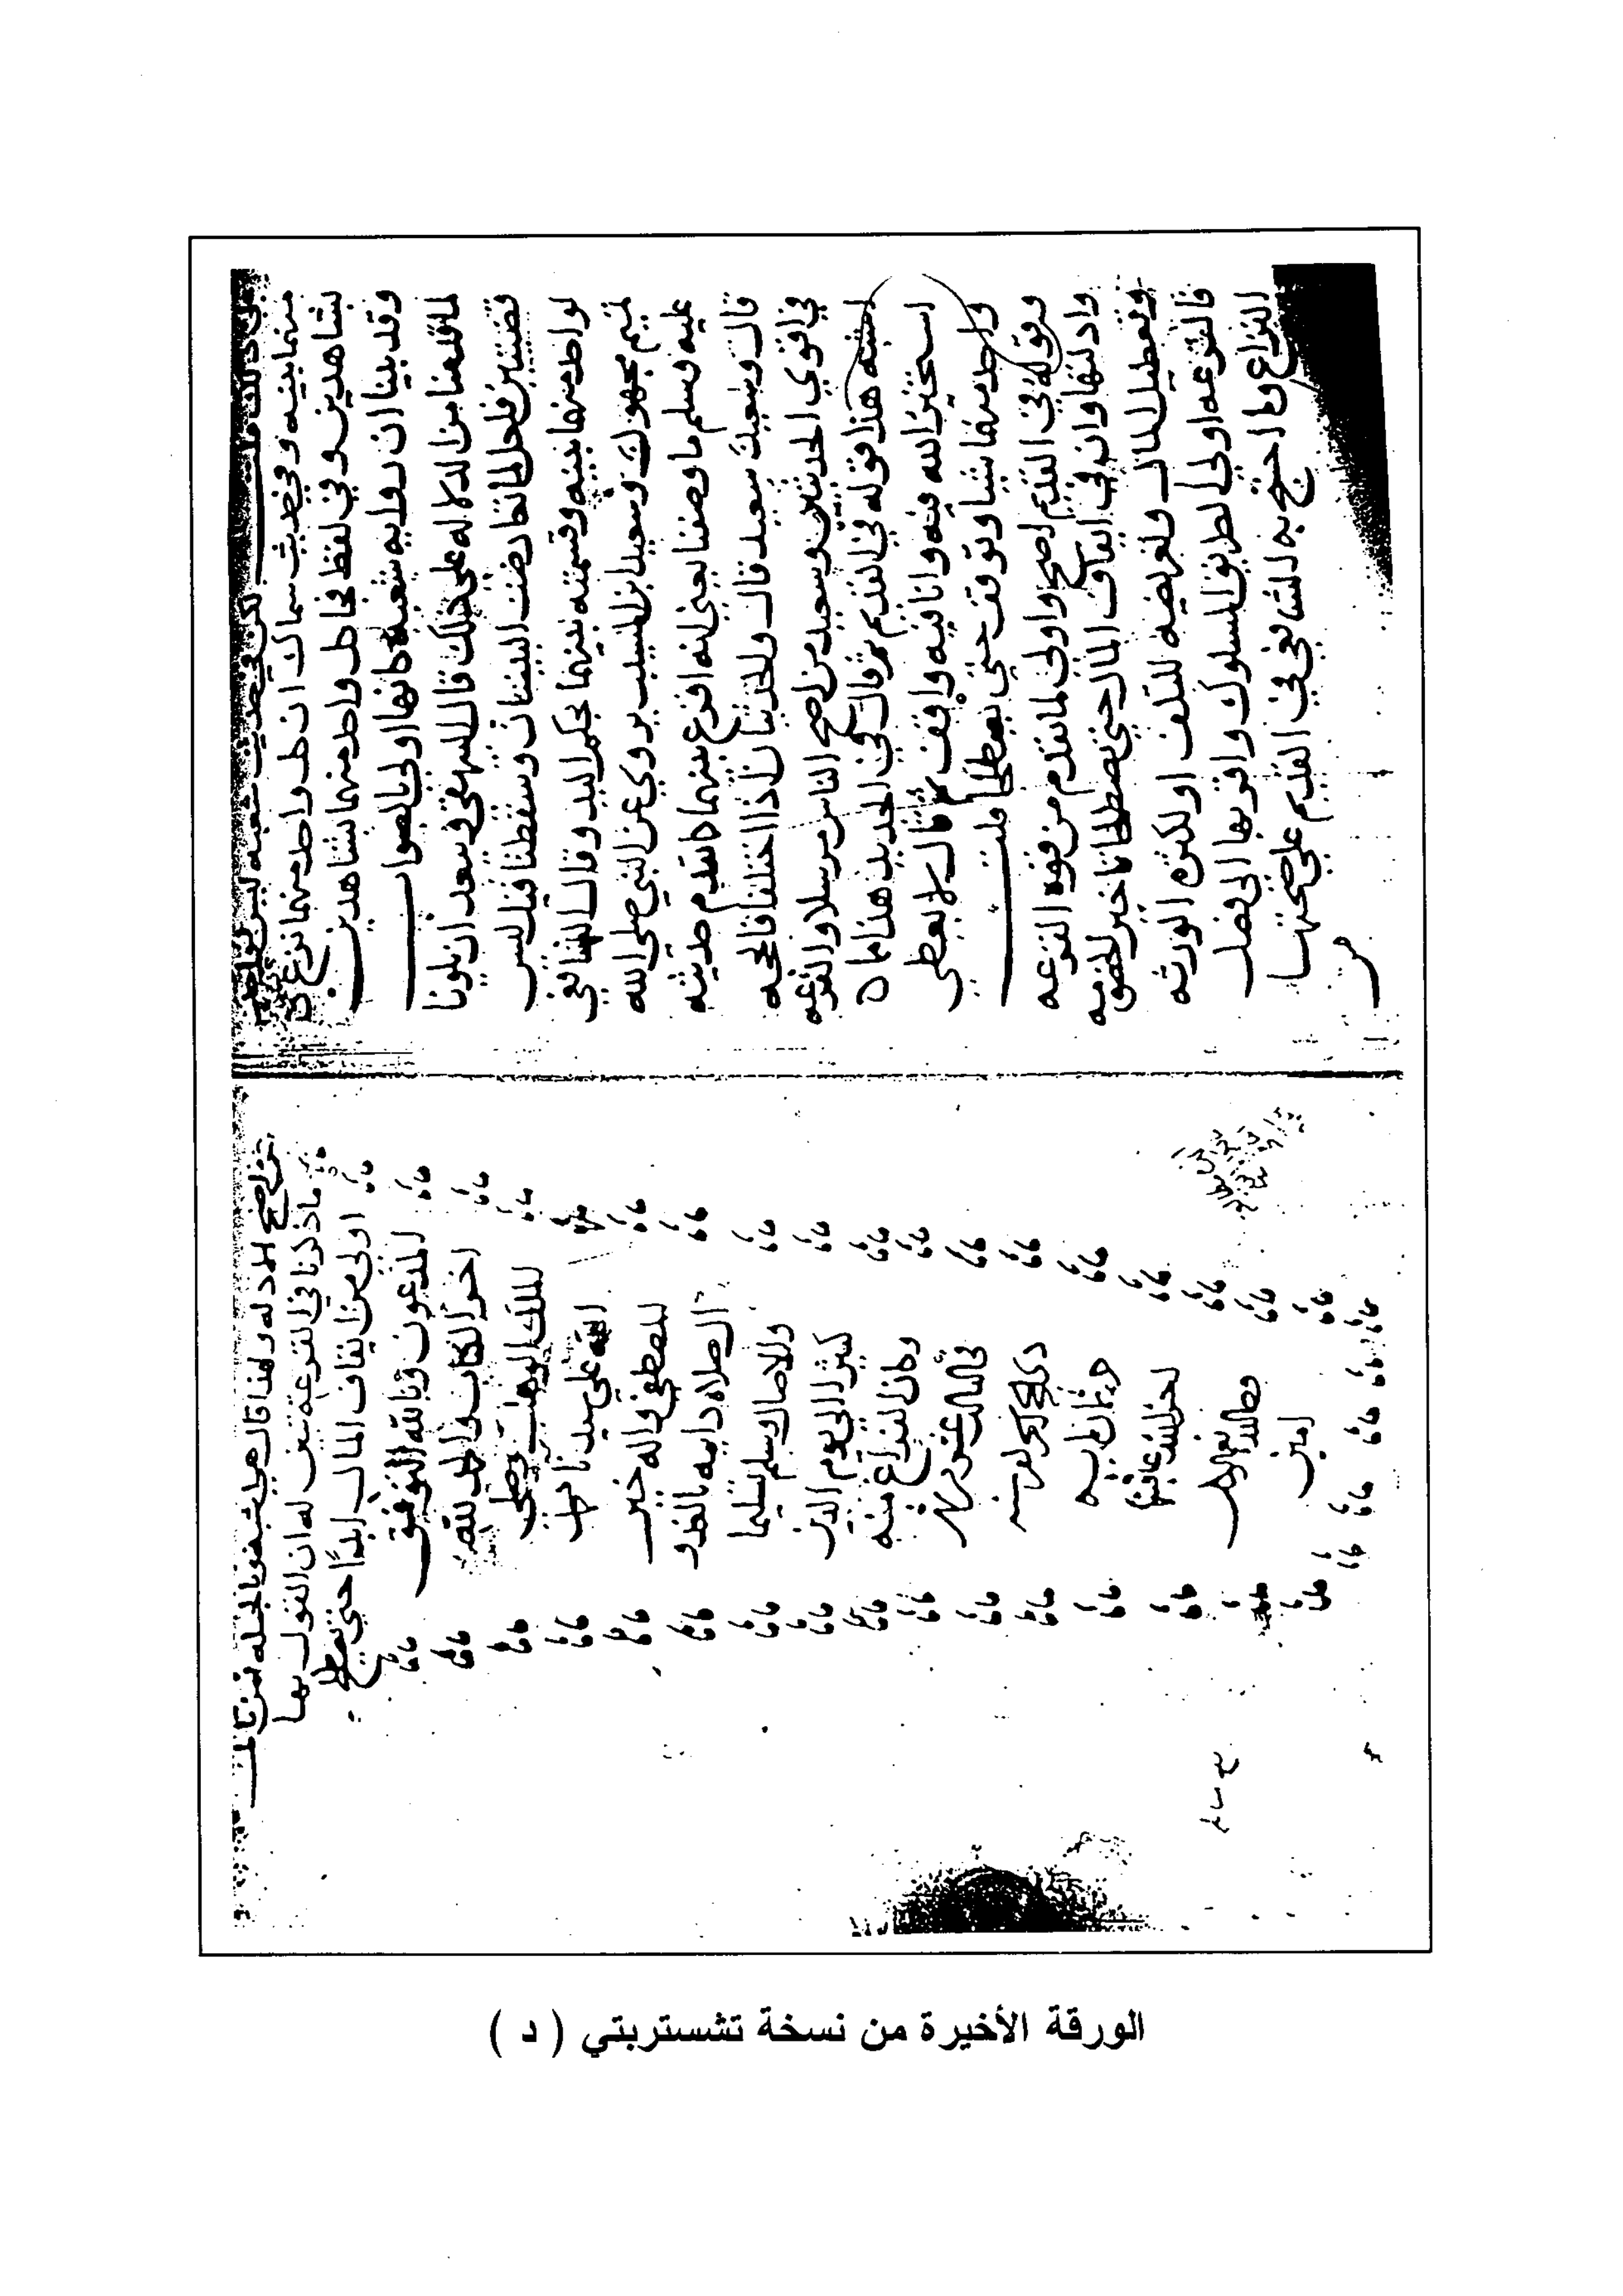 منهما بينه وفي حديث سماك ان كل واحد منهما نزع
بشاهدين وفي لفظ فجا كل واحد منهما بشاهدين
وقد بينا ان رواية شعبه كانها اولى بالصواب
لما قدمنا من الدلاله على ذلك قال البيهقي وبعد ان يكونا
قضيتين فلعل لما تعارضت البينتان وسقطتا فقيل ليس
لواحد منهما بينه وقسمته بينهما بحكم اليد وقال الشافعي
تميم مجهول وسعيد ابن المسيب يروي عن النبي صلى الله
عليه وسلم ما وصفنا يعني انه اقرع بينهما كما تقدم حديثه
قال وسعيد سعيد قال والحديثان اذا اختلفا فالحجه
في اقوى الحديثين وسعيد من اصح الناس مرسلا والقرعه
اشبه هذا قوله في القديم ثم قال في الجديد هذا مما
استخير الله فيه وانا فيه واقف ثم قال لا يعطى
واحد منهما شيا وتوقف حتى يصطلحا قلت
وقوله في القديم اصح واولى لما تقدم من قوة القرعه
وادلتها وان في ايقاف المال حتى يصطلحا تاخير الخصومه
وتعطيل المال وتعريضه للتلف او لكثرة الورثه
فالقرعه اولى الطريق المسلوك واقربها الى فصل
النزاع وما احتج به الشافعي في القديم على صحتها
من
من اصح الادله ولهذا قال هي اشبه وبالجمله فمن تامل
ما ذكرنا في القرعه تبين له ان القول بها
اولى من ايقاف المال ابدا حتى يصطلح
المدعون وبالله التوفيق
اخر الكتاب والحمد لله
الملك الوهاب وصلى
الله على سيدنا محمد
المصطفى واله خير
ال صلاه دايمه بالغدو
والاصال وسلم تسليما
كثيرا الى يوم الدين
وكان الفراغ منه
في ثالث عشر شهر
احسن الله عاقبتها
امين
الورقة الأخيرة من نسخة تشستربتي ( د )